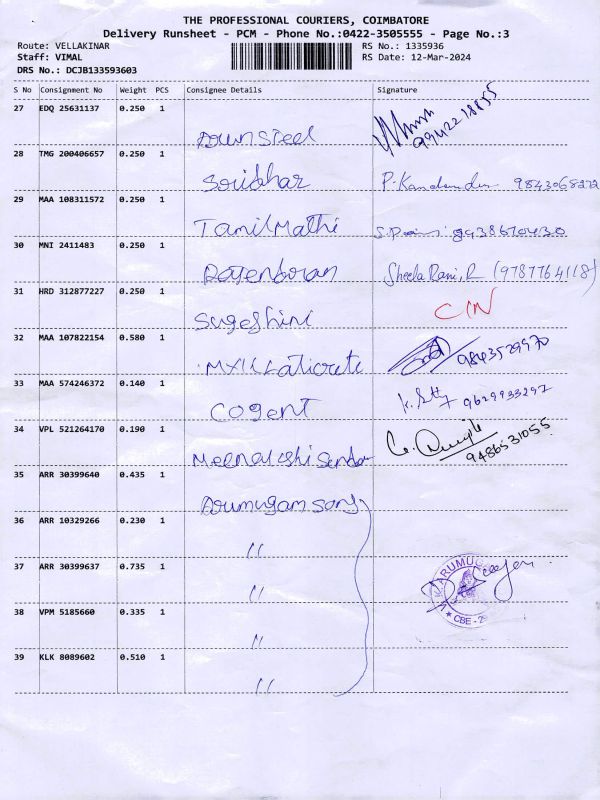 THE PROFESSIONAL COURIERS, COIMBATORE
Delivery Runsheet - PCM - Phone No.:0422-3505555 - Page No.:3
Route: VELLAKINAR RS No.: 1335936
Staff: VIMAL RS Date: 12-Mar-2024
DRS No.: DCJB133593603
S No Consignment No Weight PCS Consignee Details Signature
27 EDQ 25631137 0.250 1 Steel 9942218855
28 TMG 200406657 0.250 1 Sridhar P. 9843068272
29 MAA 108311572 0.250 1 TamilMathi
30 MNI 2411483 0.250 1 Sheela Rani, R (9787764118)
31 HRD 312877227 0.250 1 Sugeshini
32 MAA 107822154 0.580 1 MYK Laticrete 9843529970
33 MAA 574246372 0.140 1 Cogent 9629933297
34 VPL 521264170 0.190 1 Meenakshi Sundar 9486531055
35 ARR 30399640 0.435 1 Arumugam Sons
36 ARR 10329266 0.230 1 "
37 ARR 30399637 0.735 1 "
38 VPM 5185660 0.335 1 "
39 KLK 8089602 0.510 1 "